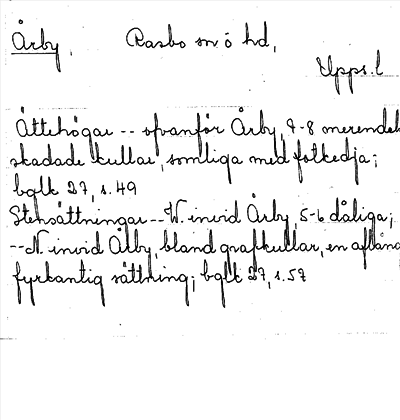 Årby, Rasbo sn ö hd,
Upps. l
Ättehögar -- ofvanför Årby, 7-8 merendels
skadade kullar, somliga med fotkedja;
bglk 27, s. 49
Stensättningar -- W. invid Årby, 5-6 dåliga;
-- N. invid Ålby, bland grafkullar, en aflång
fyrkantig sättning; bglk 27, s. 57